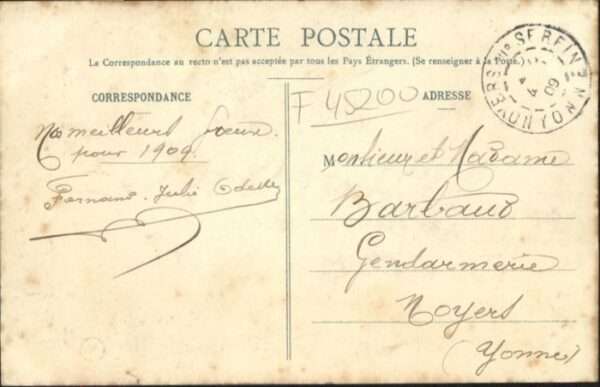 CARTE POSTALE
La Correspondance au recto n'est pas acceptée par tous les Pays Étrangers. (Se renseigner à la Poste.)
CORRESPONDANCE
F 45200
ADRESSE
Nos meilleurs Voeux
pour 1909
Fernand. Julie Odette
Monsieur et Madame
Barbaud
Gendarmerie
Noyers
(Yonne)